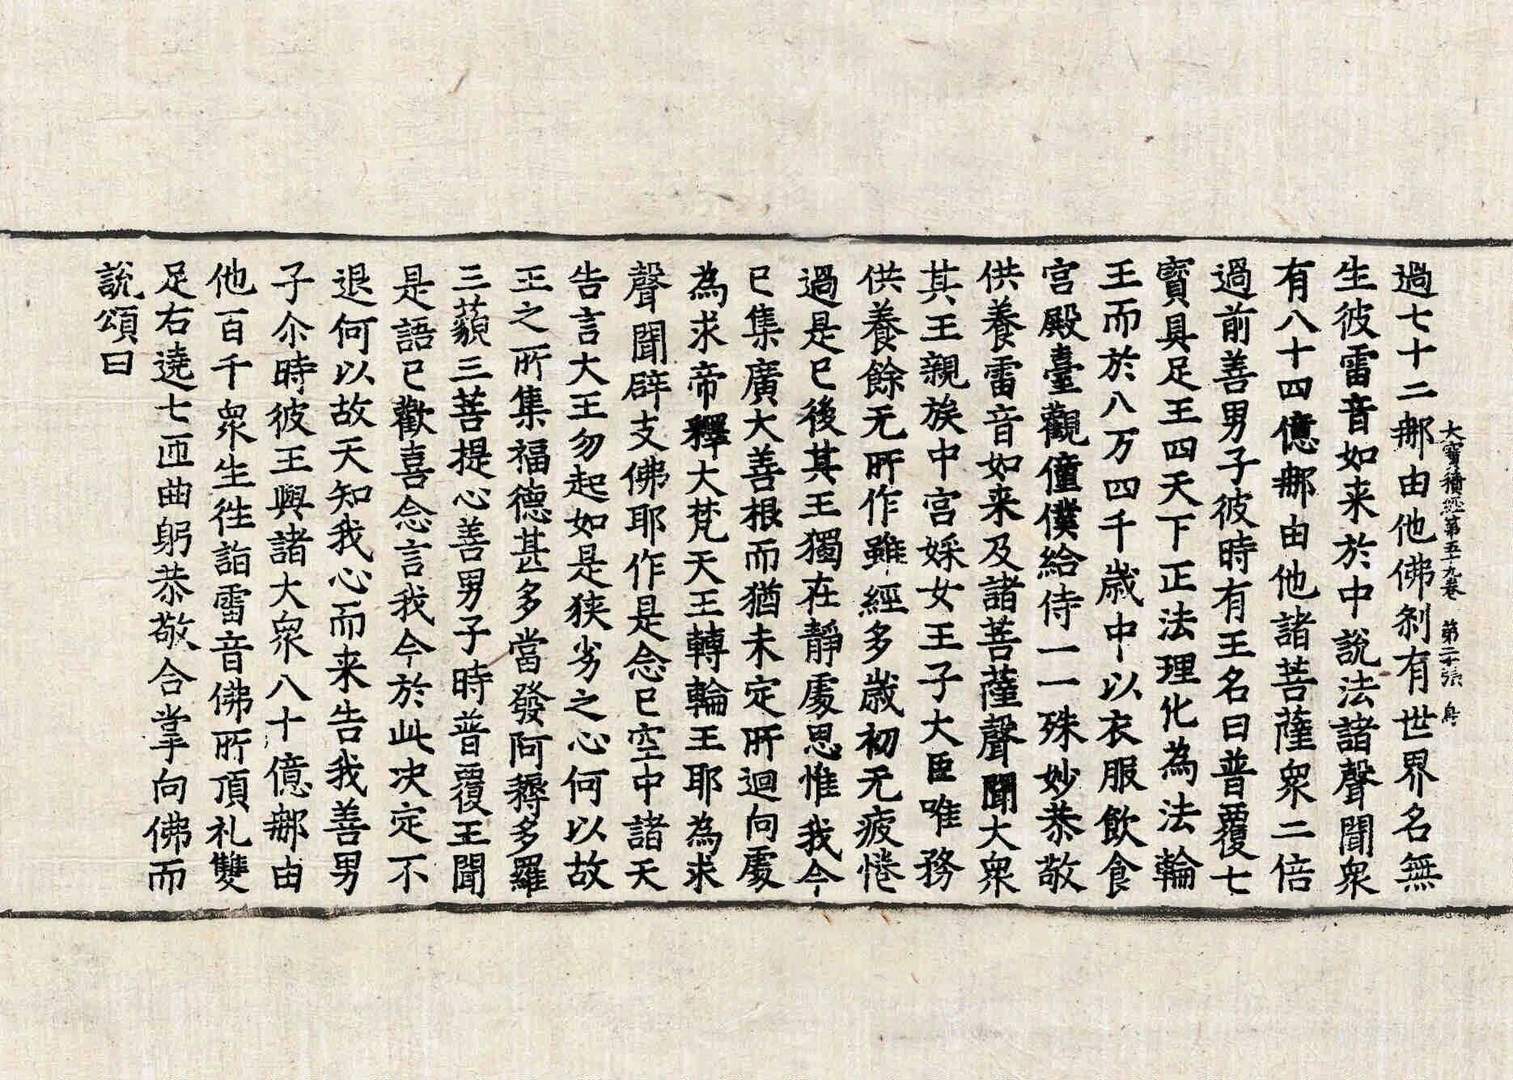 大寶積經第五十九卷 第二十張 鳥
過七十二那由他佛刹有世界名無
生彼雷音如来於中說法諸聲聞衆
有八十四億那由他諸菩薩衆二倍
過前善男子彼時有王名曰普覆七
寶具足王四天下正法理化為法輪
王而於八万四千歲中以衣服飲食
宮殿臺觀僮僕給侍一一殊妙恭敬
供養雷音如来及諸菩薩聲聞大衆
其王親族中宮婇女王子大臣唯務
供養餘无所作雖經多歲初无疲惓
過是已後其王獨在靜處思惟我今
已集廣大善根而猶未定所迴向處
為求帝釋大梵天王轉輪王耶為求
聲聞辟支佛耶作是念已空中諸天
告言大王勿起如是狹劣之心何以故
王之所集福德甚多當發阿耨多羅
三藐三菩提心善男子時普覆王聞
是語已歡喜念言我今於此决定不
退何以故天知我心而来告我善男
子尒時彼王與諸大衆八十億那由
他百千衆生往詣雷音佛所頂礼雙
足右遶七匝曲躬恭敬合掌向佛而
說頌曰